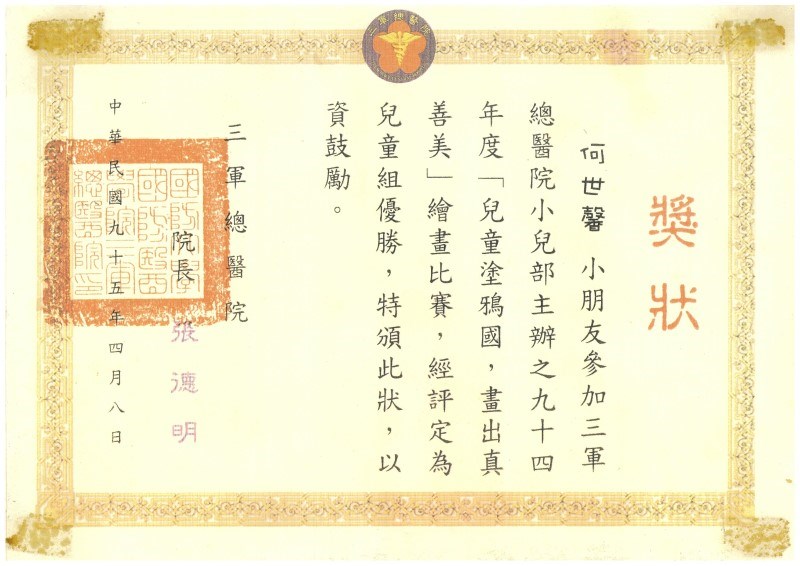 三軍總醫院
獎狀
何世馨 小朋友參加三軍
總醫院小兒部主辦之九十四
年度「兒童塗鴉國，畫出真
善美」繪畫比賽，經評定為
兒童組優勝，特頒此狀，以
資鼓勵。
三軍總醫院
院長 張德明
國防醫學院三軍總醫院印
中華民國九十五年四月八日